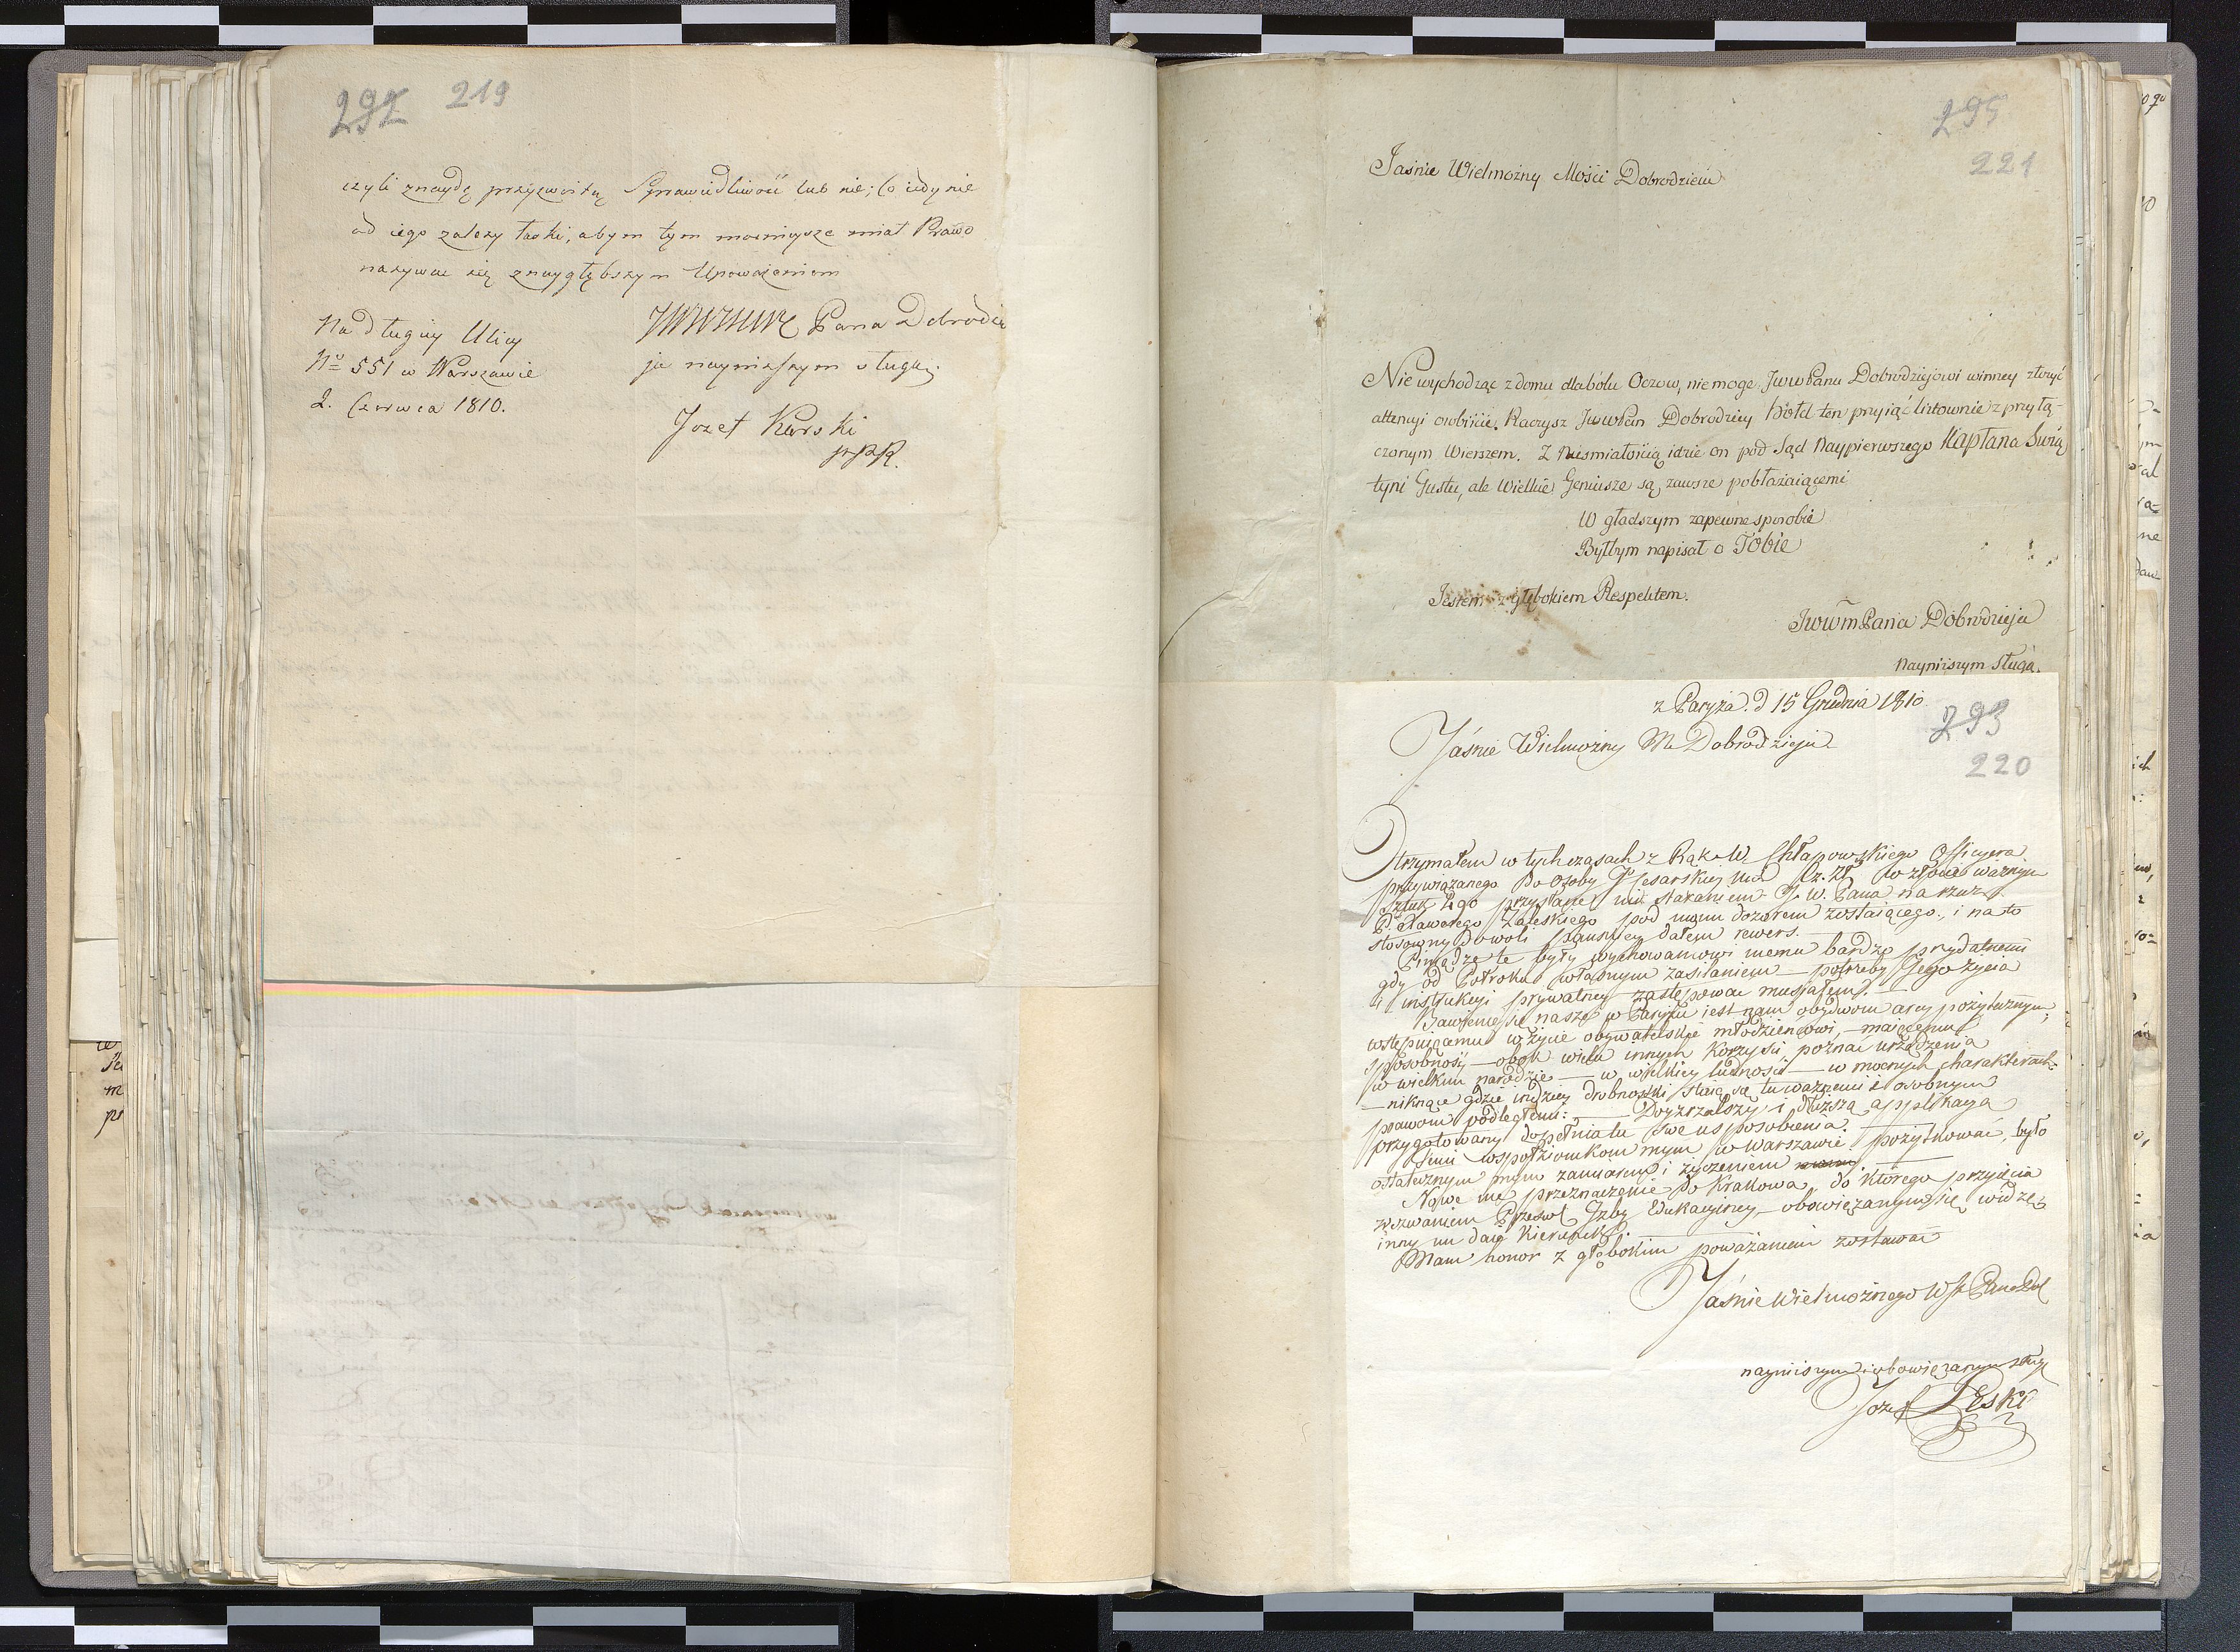 292 219
czyli znaydę przyzwoitą Sprawiedliwość lub nie; Co iedynie
od iego zależy łaski, abym tym mocnieysze miał Prawo
nazywać się znaygłębszym Upoważeniem
Na Długiey Ulicy
Nº 551 w Warszawie
2. Czerwca 1810.
Pana Dobrodzie
ja nayniższym sługą.
Jozef Karski
295
221
Jaśnie Wielmożny Mości Dobrodzieiu
Nie wychodząc z domu dla bólu Oczow, nie mogę JwwPanu Dobrodziejowi winney złożyć
attencyi osobiście. Raczysz JwwPan Dobrodziey hołd ten przyiąć listownie z przyłą-
czonym Wierszem. Z nieśmiałością idzie on pod Sąd Naypierwszego Kapłana Swią
tyni Gustu, ale Wielkie Geniusze są zawsze pobłażaiącemi
W gładszym zapewne sposobie
Byłbym napisał o Tobie
Jestem z głębokiem Respektem.
JwwmPana Dobrodzieja
Nayniższym sługą.
z Paryża. d 15 Grudnia 1810.
293
220
Jaśnie Wielmożny M Dobrodzieju
Otrzymałem w tych czasach z Rąk W. Chłapowskiego Officyera
przywiązanego do Osoby Cesarskiey w złocie ważnym
Sztuk 290 przysłane mi staraniem J. W. Pana na rzecz
P. Xawerego Zaleskiego pod moim dozorem zostaiącego, i na to
stosowny dowoli dałem rewers.
Pieniądze te były wychowańcowi memu bardzo przydatnemi
gdy od Półroku własnym zasilaniem potrzeby Jego życia
i instrukcyi prywatney zastępować musiałem.
Bawienie się nasze w Paryżu iest nam obydwom arcy pożytecznym;
wstępuiącemu w życie obywatelskie młodzieńcowi, — maiącemu
sposobność — obok wielu innych korzyści poznać urządzenia
w wielkim narodzie — w wielkiey ludności — w mocnych charakterach
— niknące gdzie indziey drobnostki staią są tu ważnemi i osobnym
prawom podległemi: — Doyrzalszy i dłuższą applikacyą
przygotowany dopełnia tu swe usposobienia.
Niemi współziomkom mym w Warszawie pożytkować, było
ostatecznym mym zamiarem i życzeniem
Nowe me przeznaczenie do Krakowa, do którego przyięcia
wezwaniem Prześwt Izby Edukacyiney — obowiązanym się widzę,
inny im daie kierunek.
Mam honor z głębokim poważaniem zostawać
Jaśnie Wielmożnego
nayniższym i obowiązanym sługą
Jozef Peski